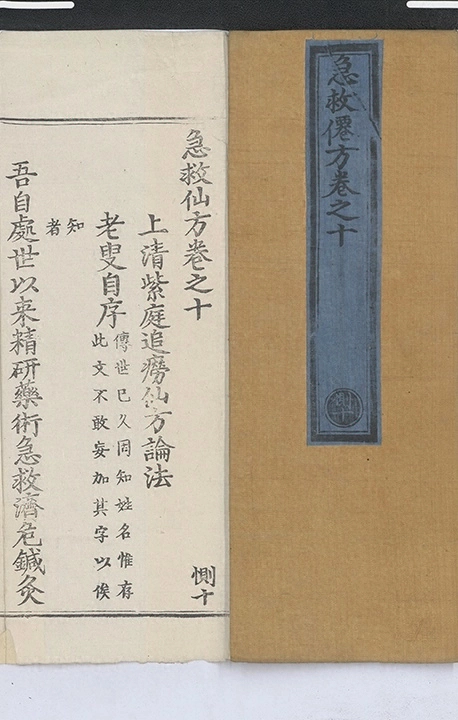 急救僊方卷之十
惻十
急救仙方卷之十
惻十
上清紫庭追癆仙方論法
老叟自序
傳世已久罔知姓名惟存
此文不敢妄加其字以俟
知
者
吾自處世以來精研藥術急救濟危鍼灸